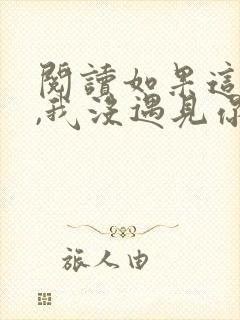 閱讀如果這
,我沒遇見你
旅人由